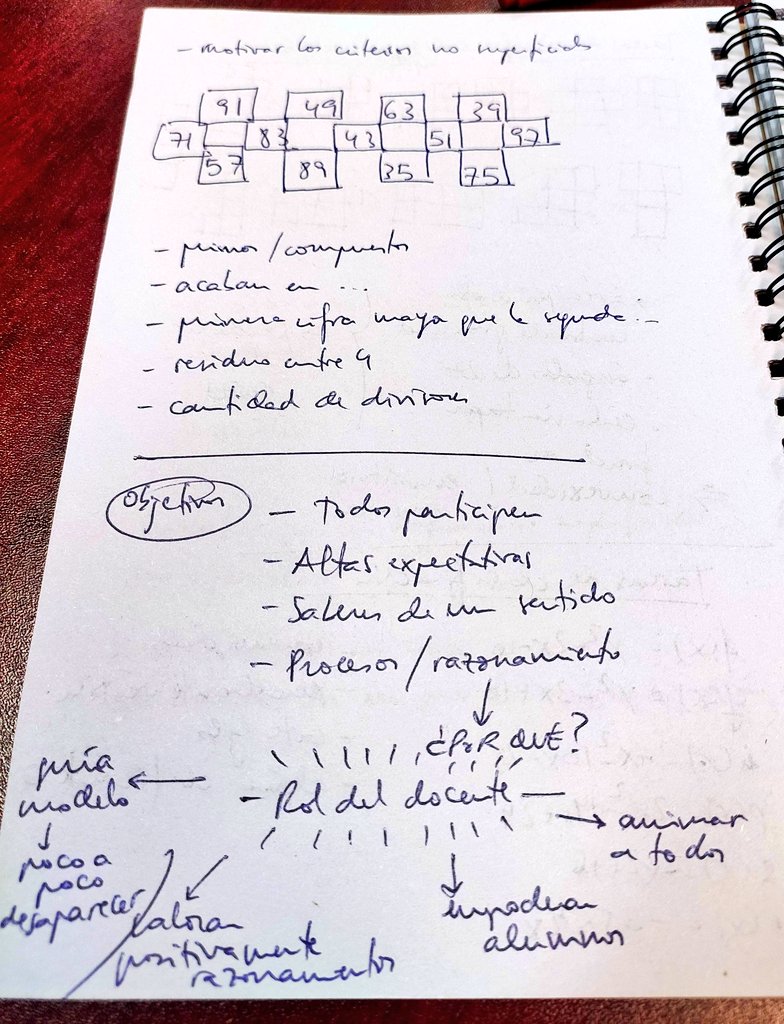 - motivar los criterios no superficiales
91 49 63 39
71 83 43 51 97
57 89 35 75
- primos / compuestos
- acaban en ...
- primera cifra mayor que la segunda.-
- residuo entre 4
- cantidad de divisores
Objetivos
- Todos participen
- Altas expectativas
- Saberes de un sentido
- Procesos / razonamiento
¿POR QUÉ?
- Rol del docente -
guía
modelo
poco a
poco
desaparecer
valoran
positivamente
razonamientos
empoderan
alumnos
animar
a todos